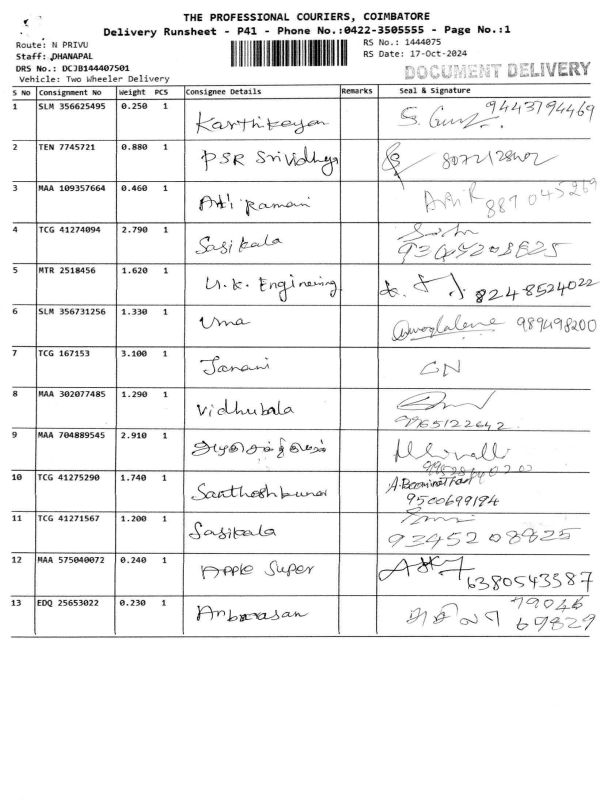 THE PROFESSIONAL COURIERS, COIMBATORE
Delivery Runsheet - P41 - Phone No.:0422-3505555 - Page No.:1
Route: N PRIVU RS No.: 1444075
Staff: DHANAPAL RS Date: 17-Oct-2024
DRS No.: DCJB144407501 DOCUMENT DELIVERY
Vehicle: Two Wheeler Delivery
S No Consignment No Weight PCS Consignee Details Remarks Seal & Signature
1 SLM 356625495 0.250 1 Karthikeyan 9443794469
2 TEN 7745721 0.880 1 PSR Srividhya
3 MAA 109357664 0.460 1 Adi Raman 887045269
4 TCG 41274094 2.790 1 Sasikala 9345208825
5 MTR 2518456 1.620 1 U.K. Engineering 8248524022
6 SLM 356731256 1.330 1 Uma 989498200
7 TCG 167153 3.100 1 Janani GN
8 MAA 302077485 1.290 1 Vidhubala 9965122642
9 MAA 704889545 2.910 1
10 TCG 41275290 1.740 1 Santhoshkumar 9500699194
11 TCG 41271567 1.200 1 Sasikala 9345208825
12 MAA 575040072 0.240 1 Apple Super 6380543387
13 EDQ 25653022 0.230 1 Anbarasan 79046
69829